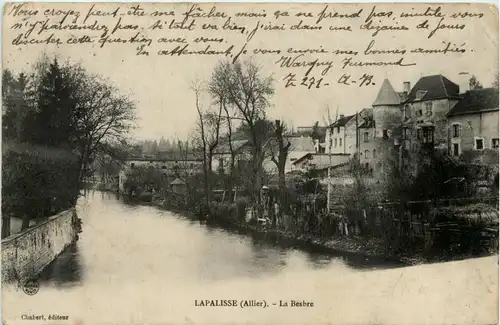 tu crois peut-être me fâcher, mais ça ne prend pas, inutile vous
n'y parviendrez pas. Si tout va bien, j'irai dans une dizaine de jours
discuter cette question avec vous.
En attendant, je vous envoie mes bonnes amitiés.
2.271. A.B.
LAPALISSE (Allier). - La Besbre
Chabert, éditeur